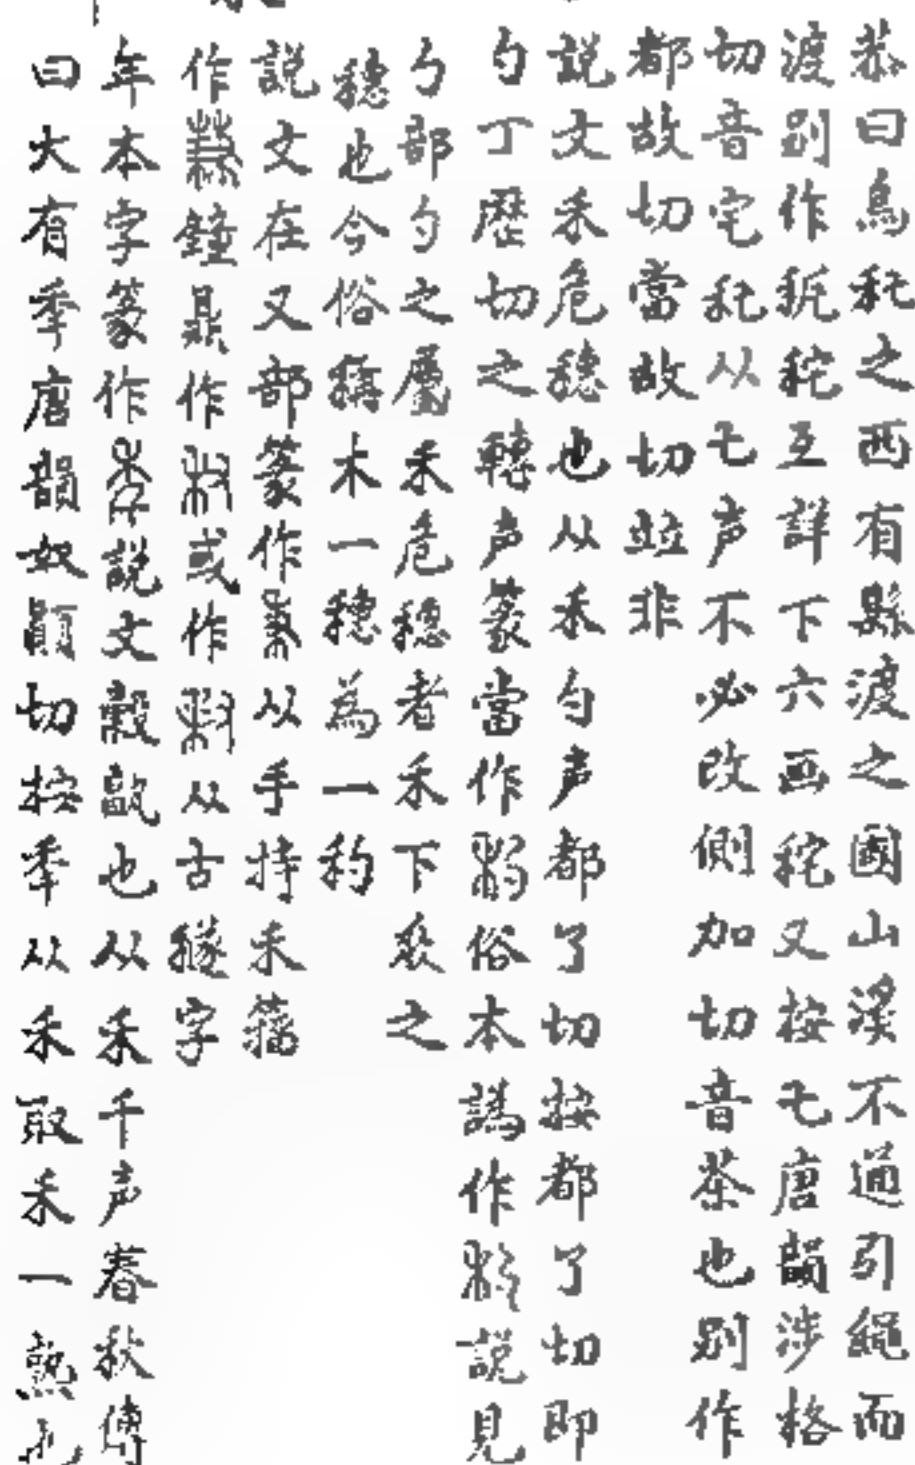 恭曰烏秅之西有縣渡之國山溪不通引繩而
渡別作䄡秺互詳下六画秺又按乇唐韻涉格
切音宅秅从乇声不必改側加切音茶也別作
都故切當故切竝非
說文禾危穗也从禾勺声都了切按都了切即
勺丁歷切之轉声篆當作俗本譌作說見
勺部勺之屬禾危穗者禾下垂之
穗也今俗稱木一穗為一䄪
說文在又部篆作从手持禾籀
作鐘鼎作或作从古字
年本字篆作說文穀孰也从禾千声春秋傳
曰大有季唐韻奴顚切按秊从禾取禾一熟也